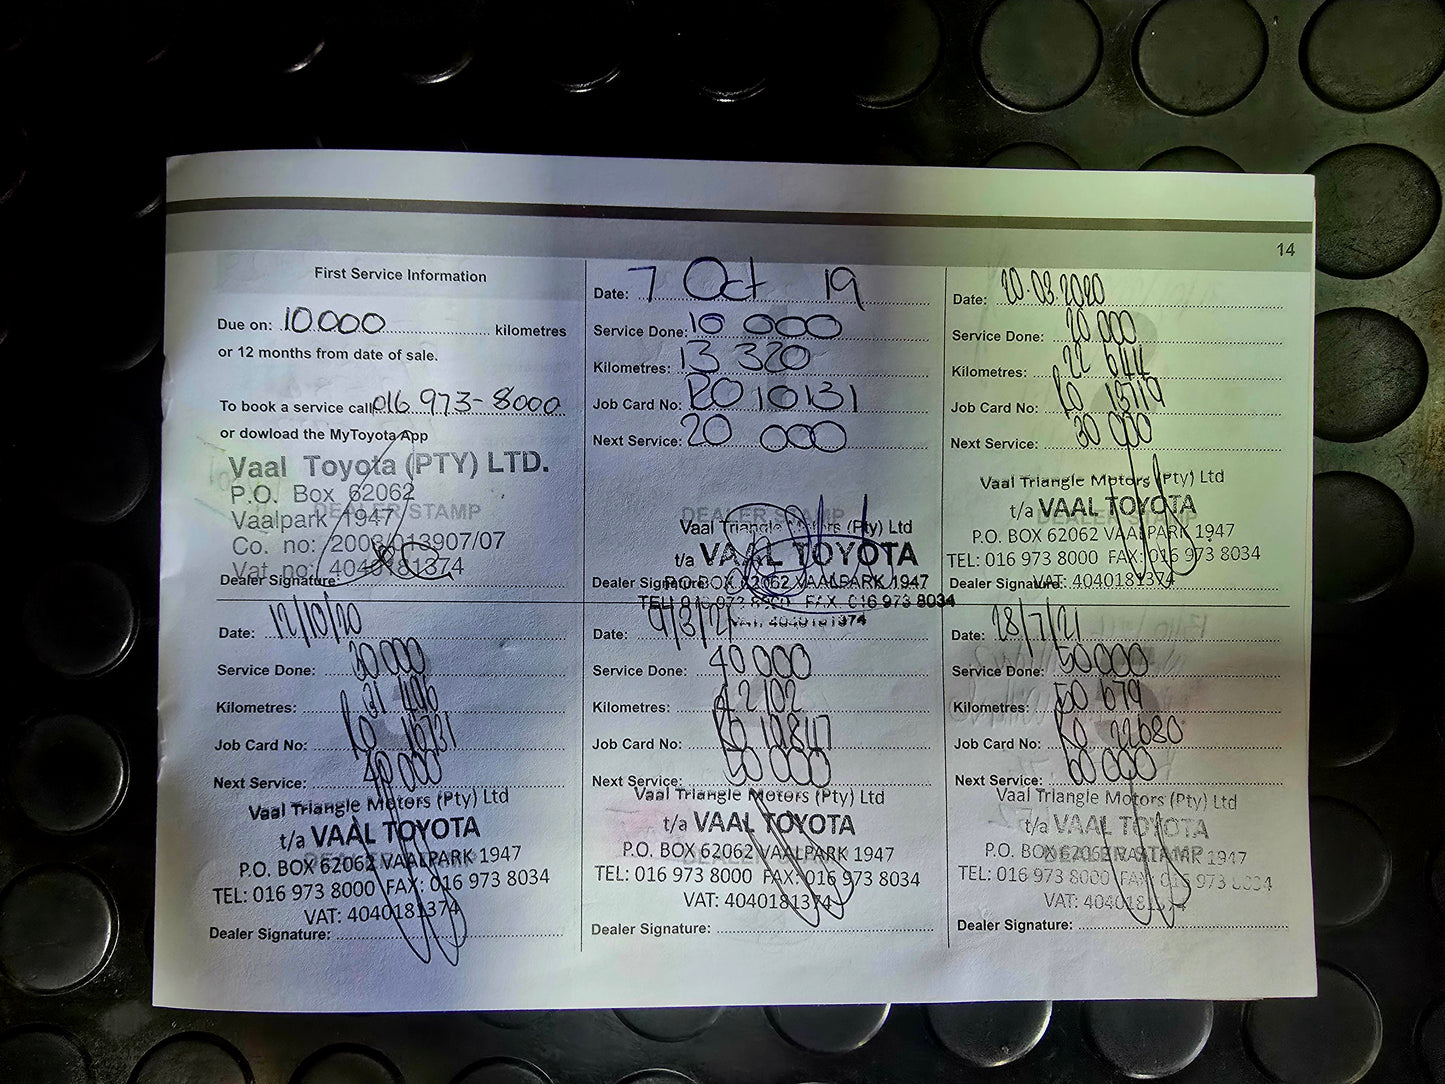 14
First Service Information
Due on: 10 000 kilometres
or 12 months from date of sale.
To book a service call 016 973-8000
or dowload the MyToyota App
Vaal Toyota (PTY) LTD.
P.O. Box 62062
Vaalpark 1947
DEALER STAMP
Co. no: 2003/013907/07
Vat no: 4040181374
Dealer Signature:
Date: 7 Oct 19
Service Done: 10 000
Kilometres: 13 320
Job Card No: RO 10131
Next Service: 20 000
DEALER STAMP
Vaal Triangle Motors (Pty) Ltd
t/a VAAL TOYOTA
Dealer Signature:
P.O. BOX 62062 VAALPARK 1947
TEL: 016 973 8000 FAX: 016 973 8034
VAT: 4040181374
Date: 20.03.2020
Service Done: 20 000
Kilometres: 22 644
Job Card No: Ro 13719
Next Service: 30 000
Vaal Triangle Motors (Pty) Ltd
t/a VAAL TOYOTA
DEALER STAMP
P.O. BOX 62062 VAALPARK 1947
TEL: 016 973 8000 FAX: 016 973 8034
Dealer Signature:
VAT: 4040181374
Date: 12/10/20
Service Done: 30 000
Kilometres: 31 496
Job Card No: Ro 16731
Next Service: 40 000
Vaal Triangle Motors (Pty) Ltd
t/a VAAL TOYOTA
DEALER STAMP
P.O. BOX 62062 VAALPARK 1947
TEL: 016 973 8000 FAX: 016 973 8034
VAT: 4040181374
Dealer Signature:
Date: 9/3/21
Service Done: 40 000
Kilometres: 42 102
Job Card No: Ro 19847
Next Service: 50 000
Vaal Triangle Motors (Pty) Ltd
t/a VAAL TOYOTA
DEALER STAMP
P.O. BOX 62062 VAALPARK 1947
TEL: 016 973 8000 FAX: 016 973 8034
VAT: 4040181374
Dealer Signature:
Date: 28/7/21
Service Done: 50 000
Kilometres: 50 679
Job Card No: Ro 22680
Next Service: 60 000
Vaal Triangle Motors (Pty) Ltd
t/a VAAL TOYOTA
DEALER STAMP
P.O. BOX 62062 VAALPARK 1947
TEL: 016 973 8000 FAX: 016 973 8034
VAT: 4040181374
Dealer Signature: